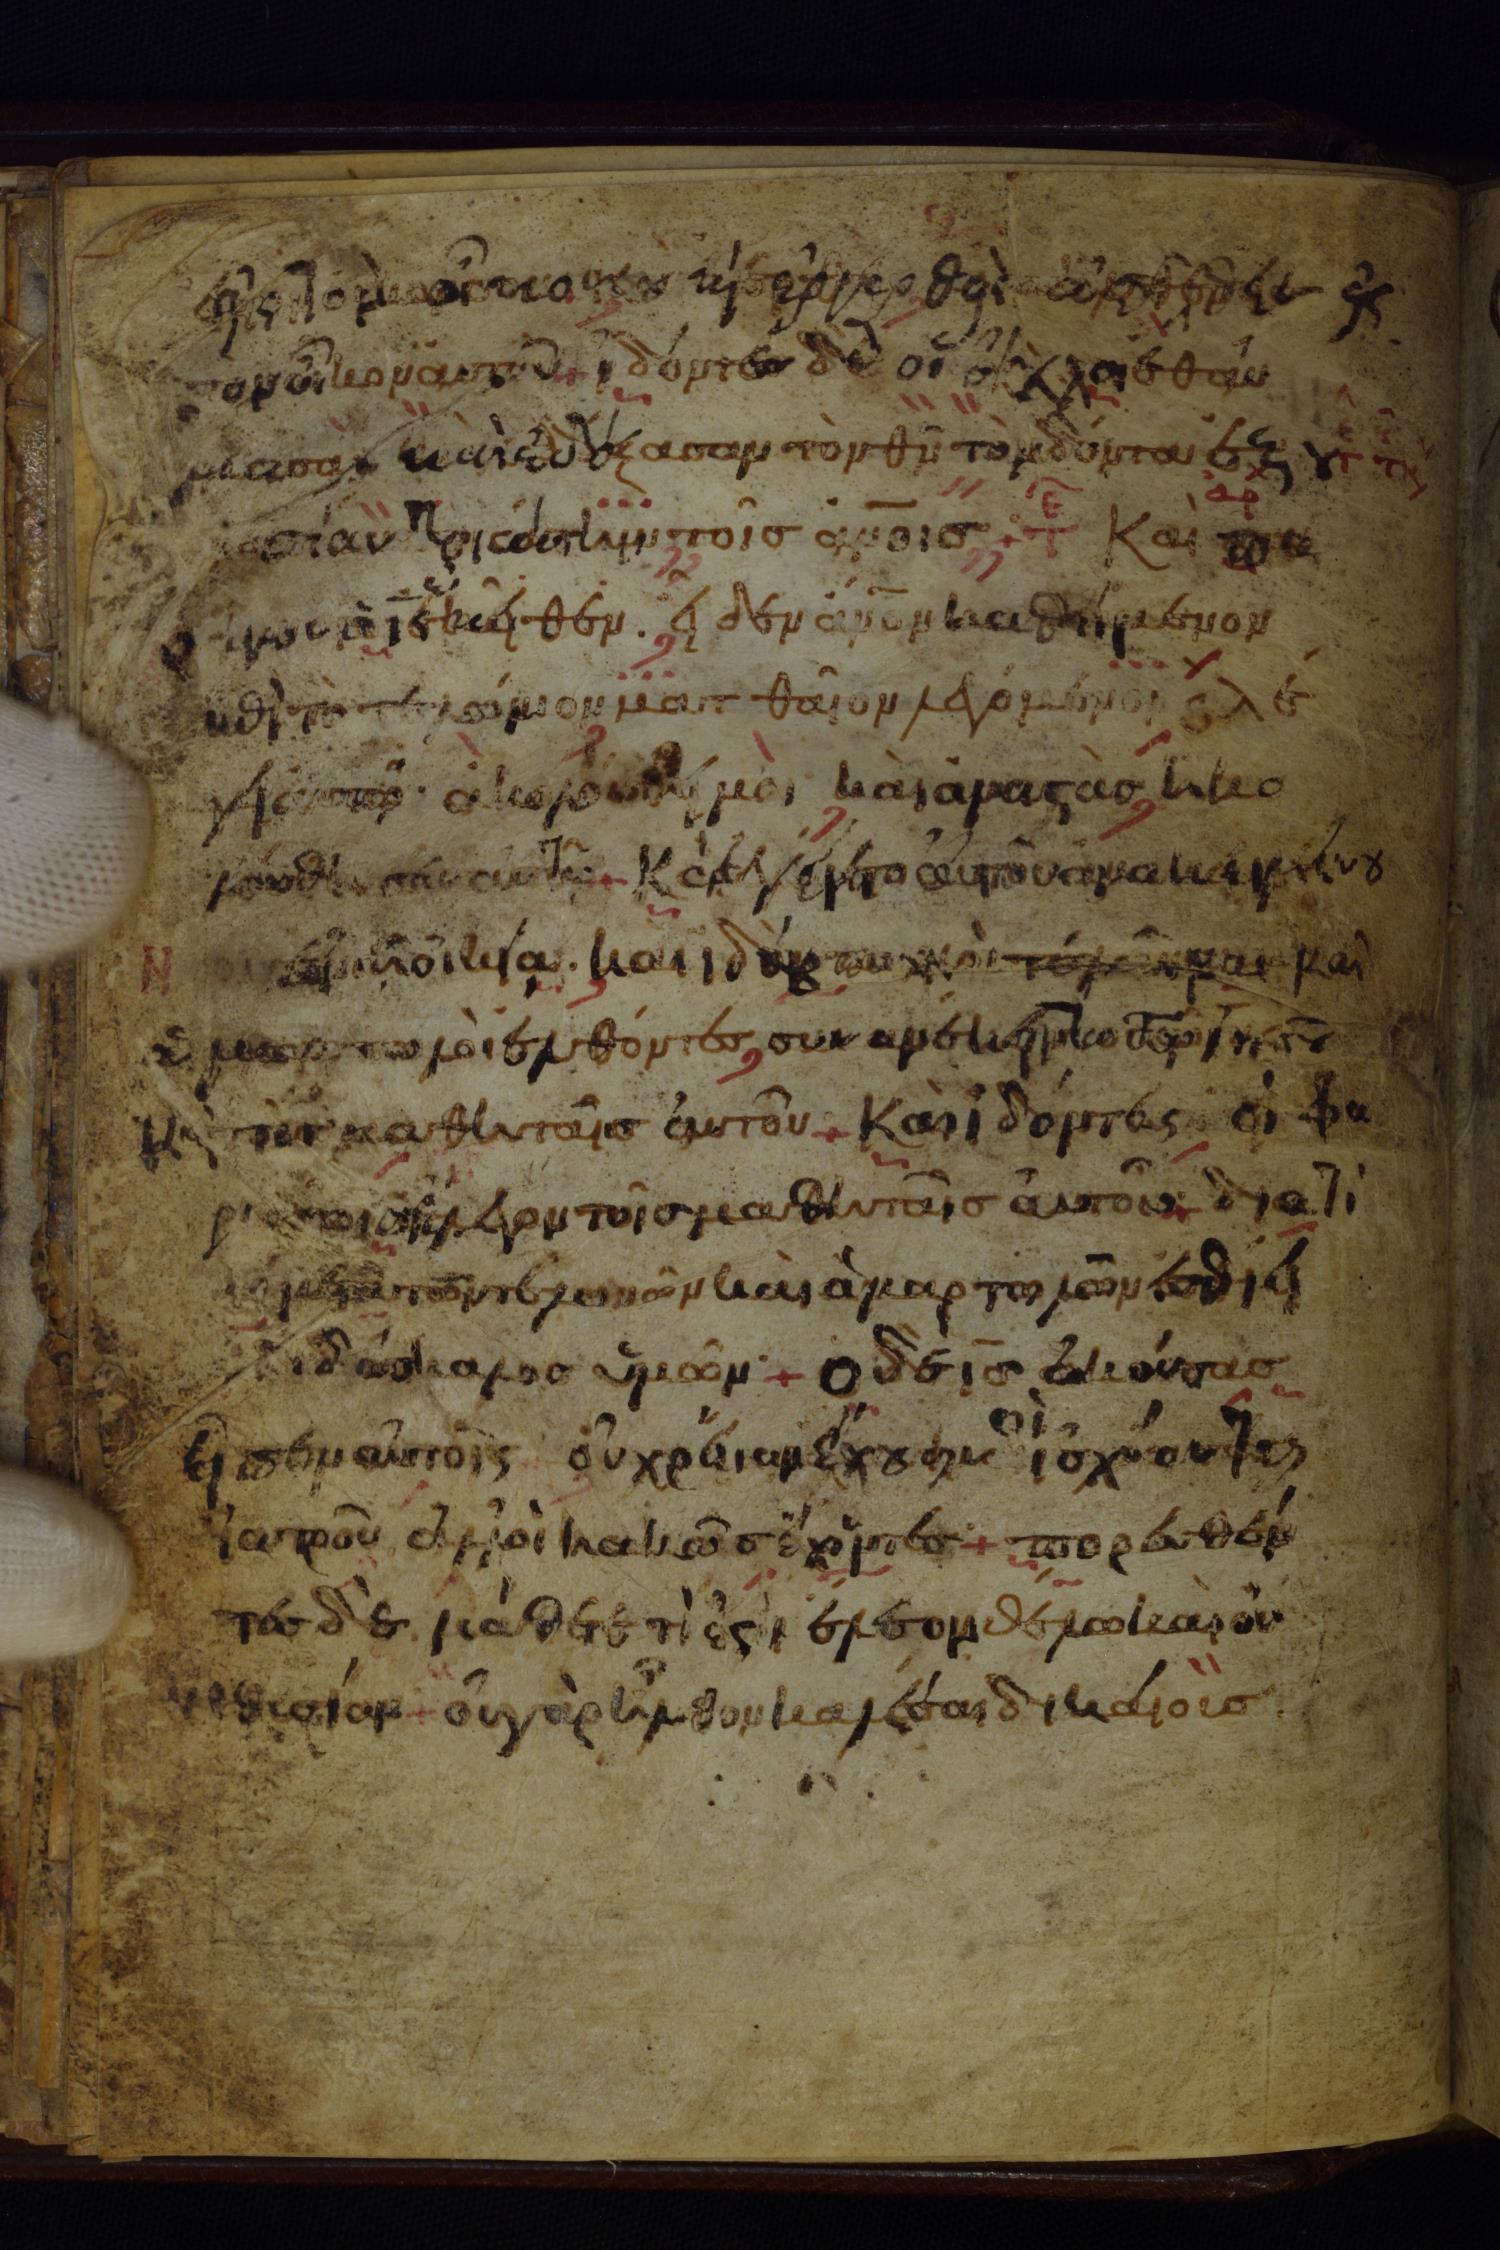 εις τὸν οἶκόν σου καὶ ἐγερθεὶς ἀπῆλθεν εἰς
τὸν οἶκον αὐτοῦ + ἰδόντες δὲ οἱ ὄχλοι ἐθαύ
μασαν καὶ ἐδόξασαν τὸν θν τὸν δόντα ἐξου
σίαν τοιαύτην τοῖς ἀνοις + Καὶ παρα
ὁ ις ἐκεῖθεν. εἶδεν ἀνον καθήμενον
ἐπὶ τὸ τελώνιον ματθαῖον λεγόμενον κ λέ
γει αὐτῷ. ἀκολούθει μοι καὶ ἀναστὰς ἠκο
λούθησεν αὐτῷ + Καὶ ἐγένετο αὐτοῦ ἀνακειμένου
ἐν τῇ οἰκίᾳ. καὶ ἰδοὺ πολλοὶ τελῶναι καὶ
ἁμαρτωλοὶ ἐλθόντες συνανέκειντο τῷ ιυ
καὶ τοῖς μαθηταῖς αὐτοῦ + Καὶ ἰδόντες οἱ φα
ρισαῖοι ἔλεγον τοῖς μαθηταῖς αὐτοῦ + διατί
μετὰ τῶν τελωνῶν καὶ ἁμαρτωλῶν ἐσθίει
ὁ διδάσκαλος ὑμῶν + ὁ δὲ ις ἀκούσας
εἶπεν αὐτοῖς οὐ χρείαν ἔχουσιν οἱ ἰσχύοντες
ἰατροῦ ἀλλ οἱ κακῶς ἔχοντες + πορευθέν
τες δὲ μάθετε τί ἐστιν ἔλεον θέλω καὶ οὐ
θυσίαν + οὐ γὰρ ἦλθον καλέσαι δικαίους